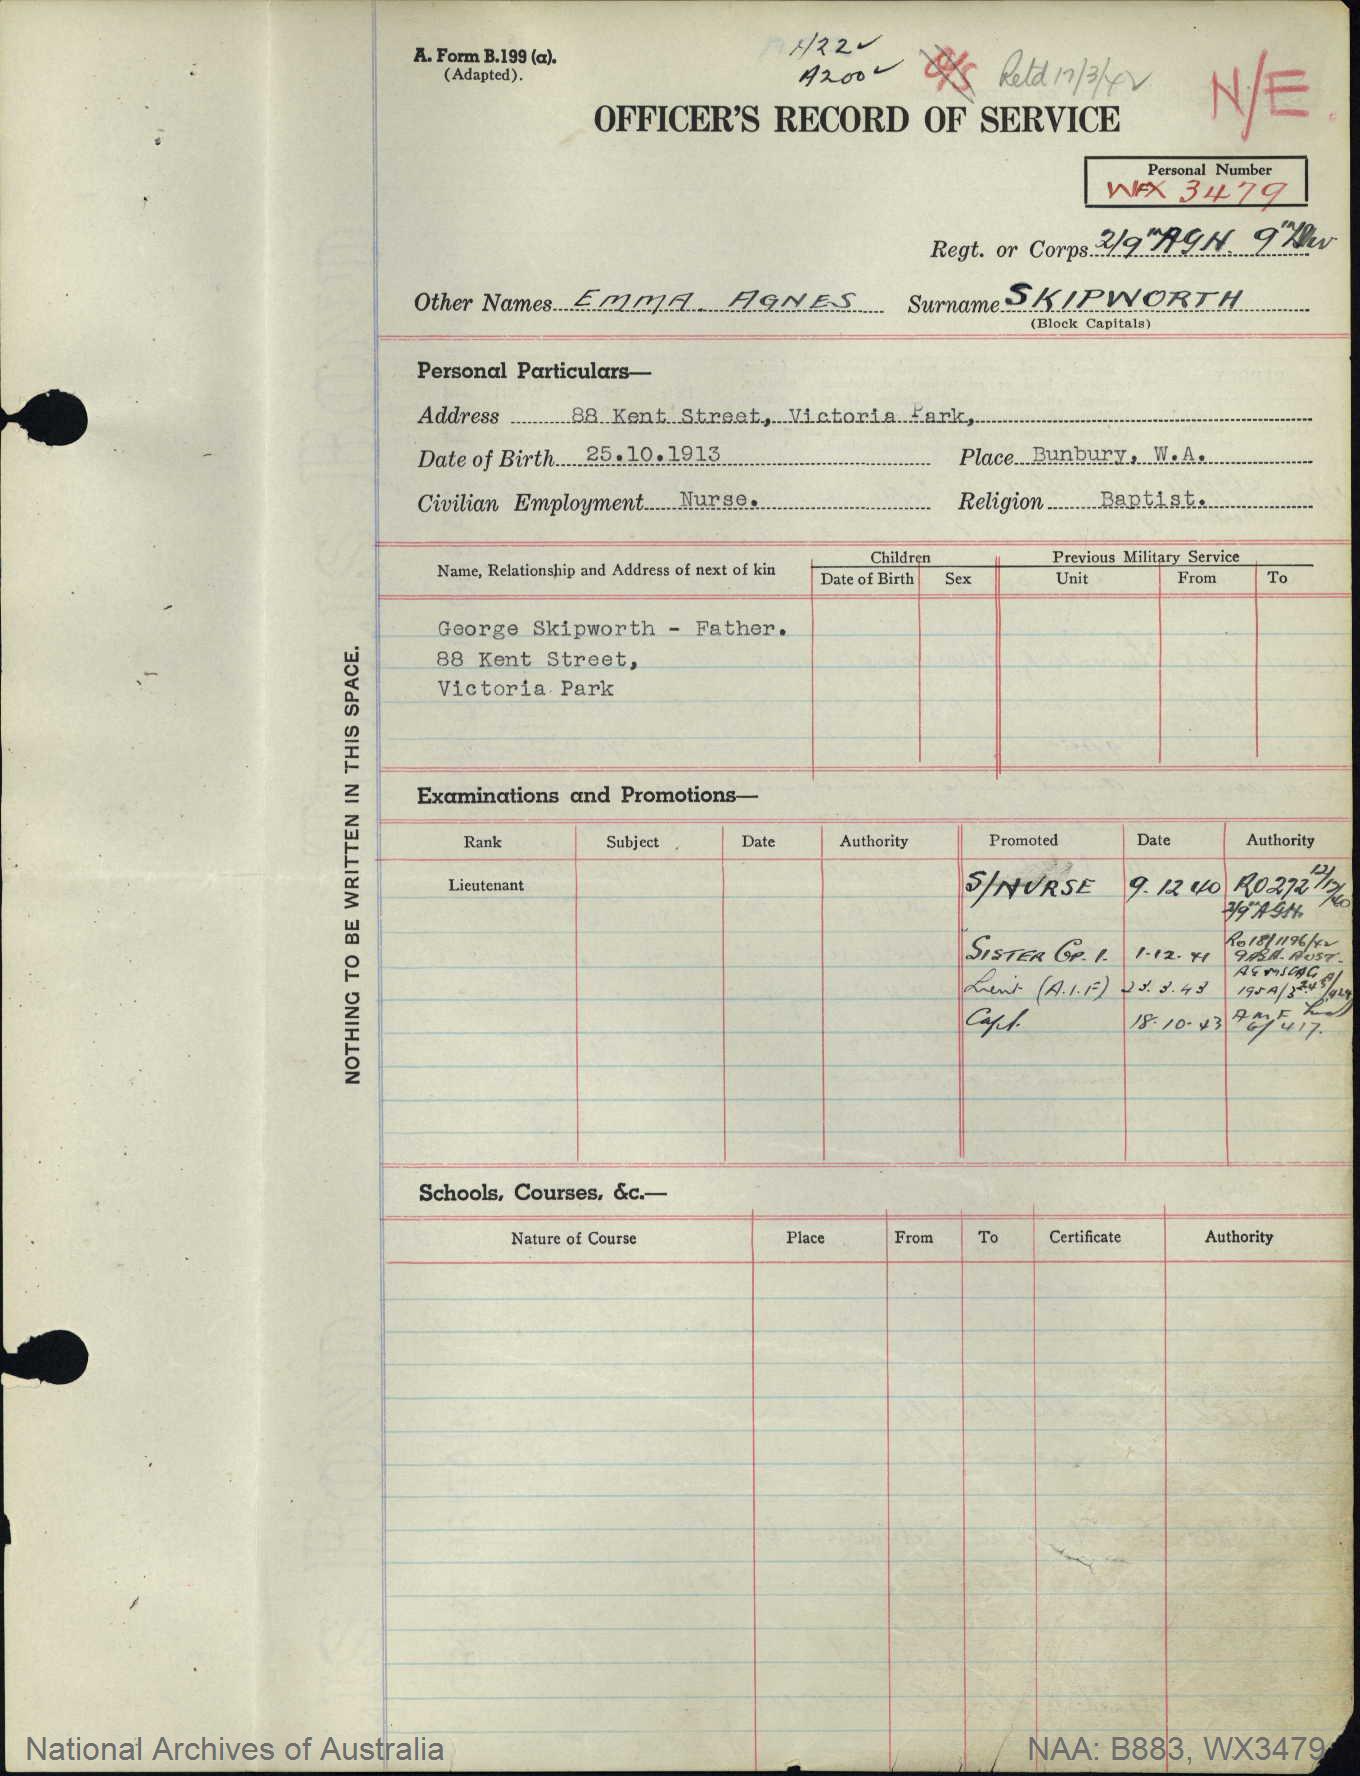 A. Form B.199 (a).
(Adapted).
A200
O/S
Retd 17/3/42
N/E
OFFICER'S RECORD OF SERVICE
Personal Number
WFX 3479
Regt. or Corps 2/9th AGH. 9th Div
Other Names EMMA. AGNES Surname SKIPWORTH
(Block Capitals)
Personal Particulars—
Address 88 Kent Street, Victoria Park,
Date of Birth 25.10.1913 Place Bunbury, W.A.
Civilian Employment Nurse. Religion Baptist.
Name, Relationship and Address of next of kin
Children
Date of Birth Sex
Previous Military Service
Unit From To
George Skipworth - Father.
88 Kent Street,
Victoria Park
NOTHING TO BE WRITTEN IN THIS SPACE.
Examinations and Promotions—
Rank Subject Date Authority Promoted Date Authority
Lieutenant S/NURSE 9.12.40 RO272 12/12/40
2/9th AGH.
SISTER GP. 1. 1.12.41 Ro18/1196/42
AUST.
Lieut (A.I.F) 23.3.43
Capt. 18.10.43 A.M.F.
6/417.
Schools, Courses, &c.—
Nature of Course Place From To Certificate Authority
National Archives of Australia
NAA: B883, WX3479